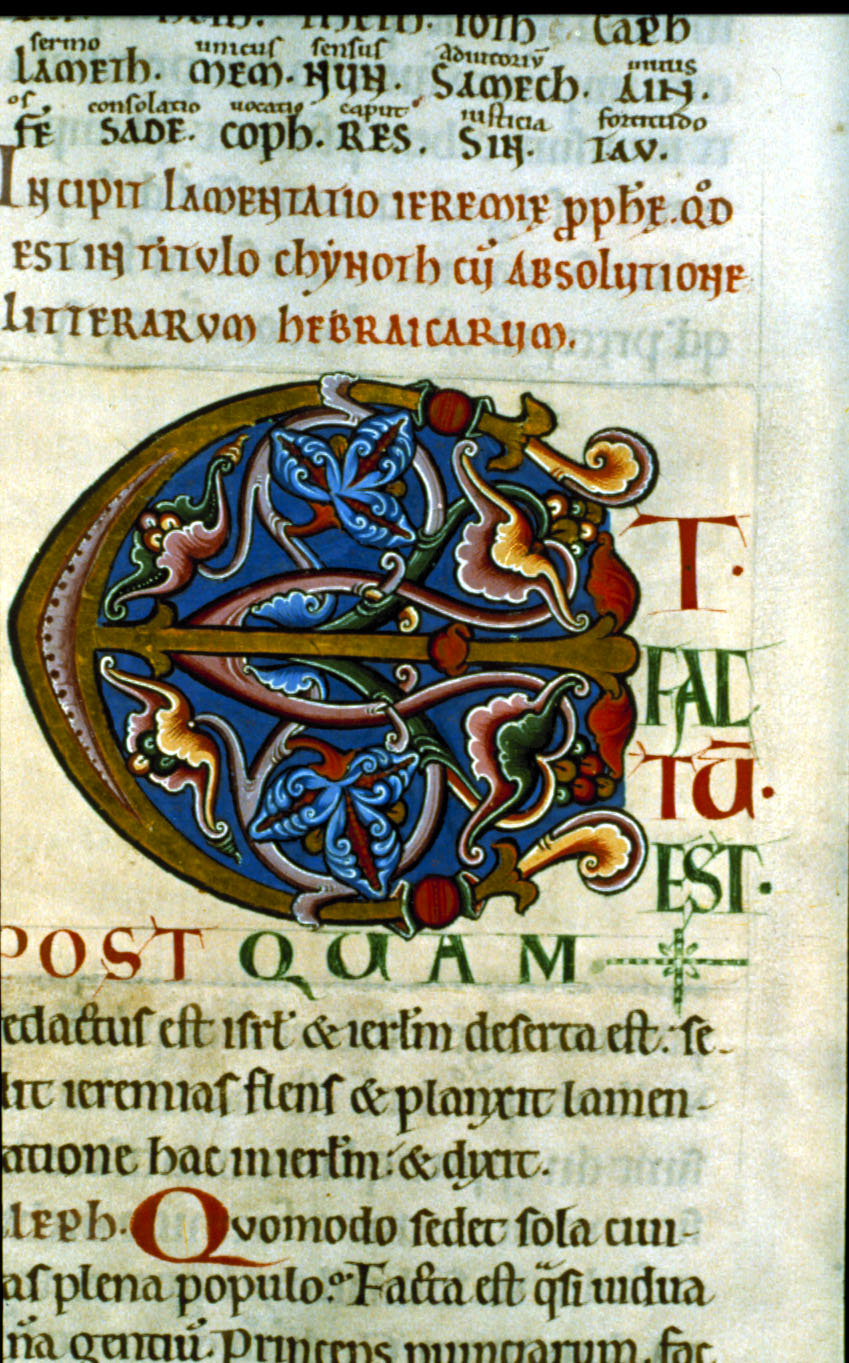 IOTH CAPH
sermo unicus sensus adiutoriū
LAMETH. MEM. NUN. SAMECH. AIN.
os consolatio uocatio caput iusticia fortitudo
FE SADE. COPH. RES. SIN. TAV.
INCIPIT LAMENTATIO IEREMIĘ PPHĘ. QD
EST IN TITVLO CHYNOTH CŪ ABSOLUTIONE
LITTERARVM HEBRAICARUM.
ET.
FAC
TŪ.
EST.
POST QUAM
edactus est isrl̄ & ierlm̄ deserta est: se-
dit ieremias flens & planxit lamen-
atione hac in ierlm̄: & dixit.
LEPH. Quomodo sedet sola ciui-
as plena populo: Facta est q̄si uidua
n̄a gentiū. Princeps